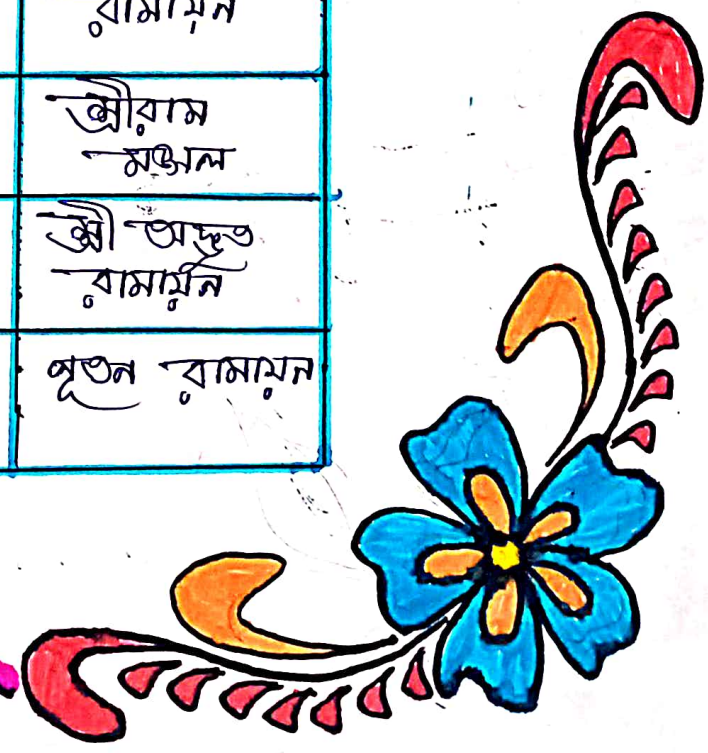 রামায়ন
শ্রীরাম
মঙ্গল
শ্রী অদ্ভুত
রামায়ন
নূতন রামায়ন